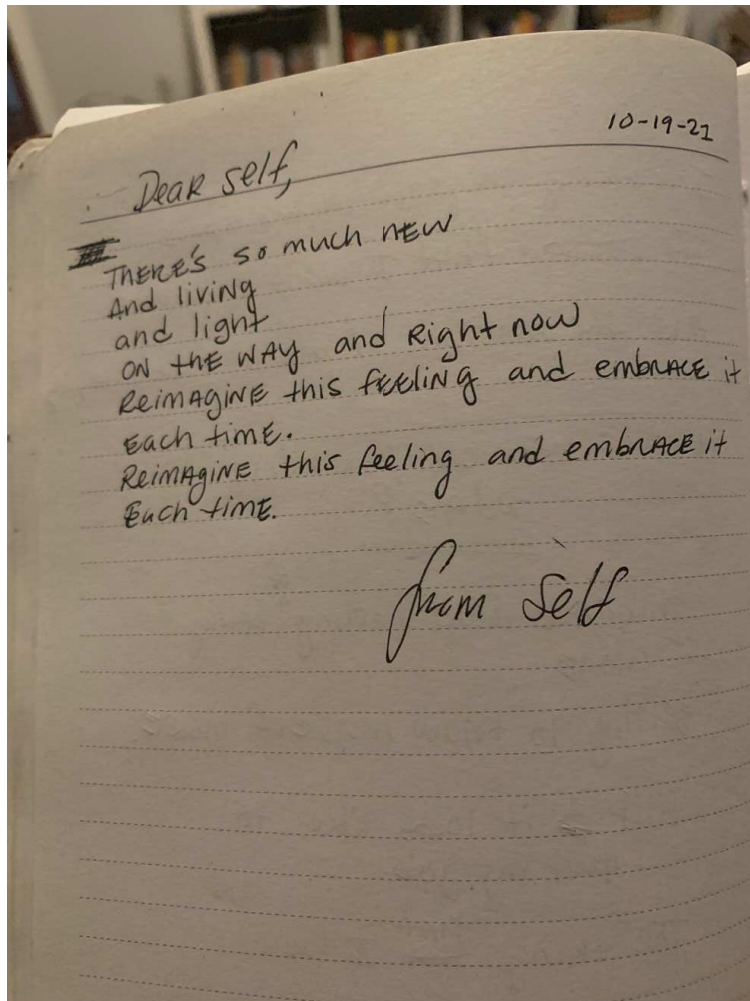 10-19-21
Dear self,
THERE'S so much NEW
And living
and light
ON THE WAY and Right now
ReimAgiNE this fEEliNg and embRACE it
Each time.
ReimAgiNE this feeling and embRACE it
Each time.
from Self